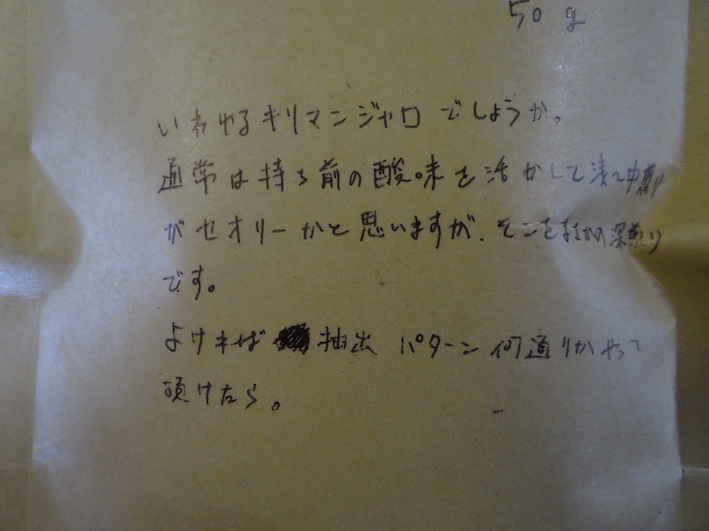 50g
いわゆるキリマンジャロでしょうか。
通常は持ち前の酸味を活かして浅〜中煎り
がセオリーかと思いますが、そこをまさかの深煎り
です。
よければ 抽出 パターン何通りかやって
頂けたら。